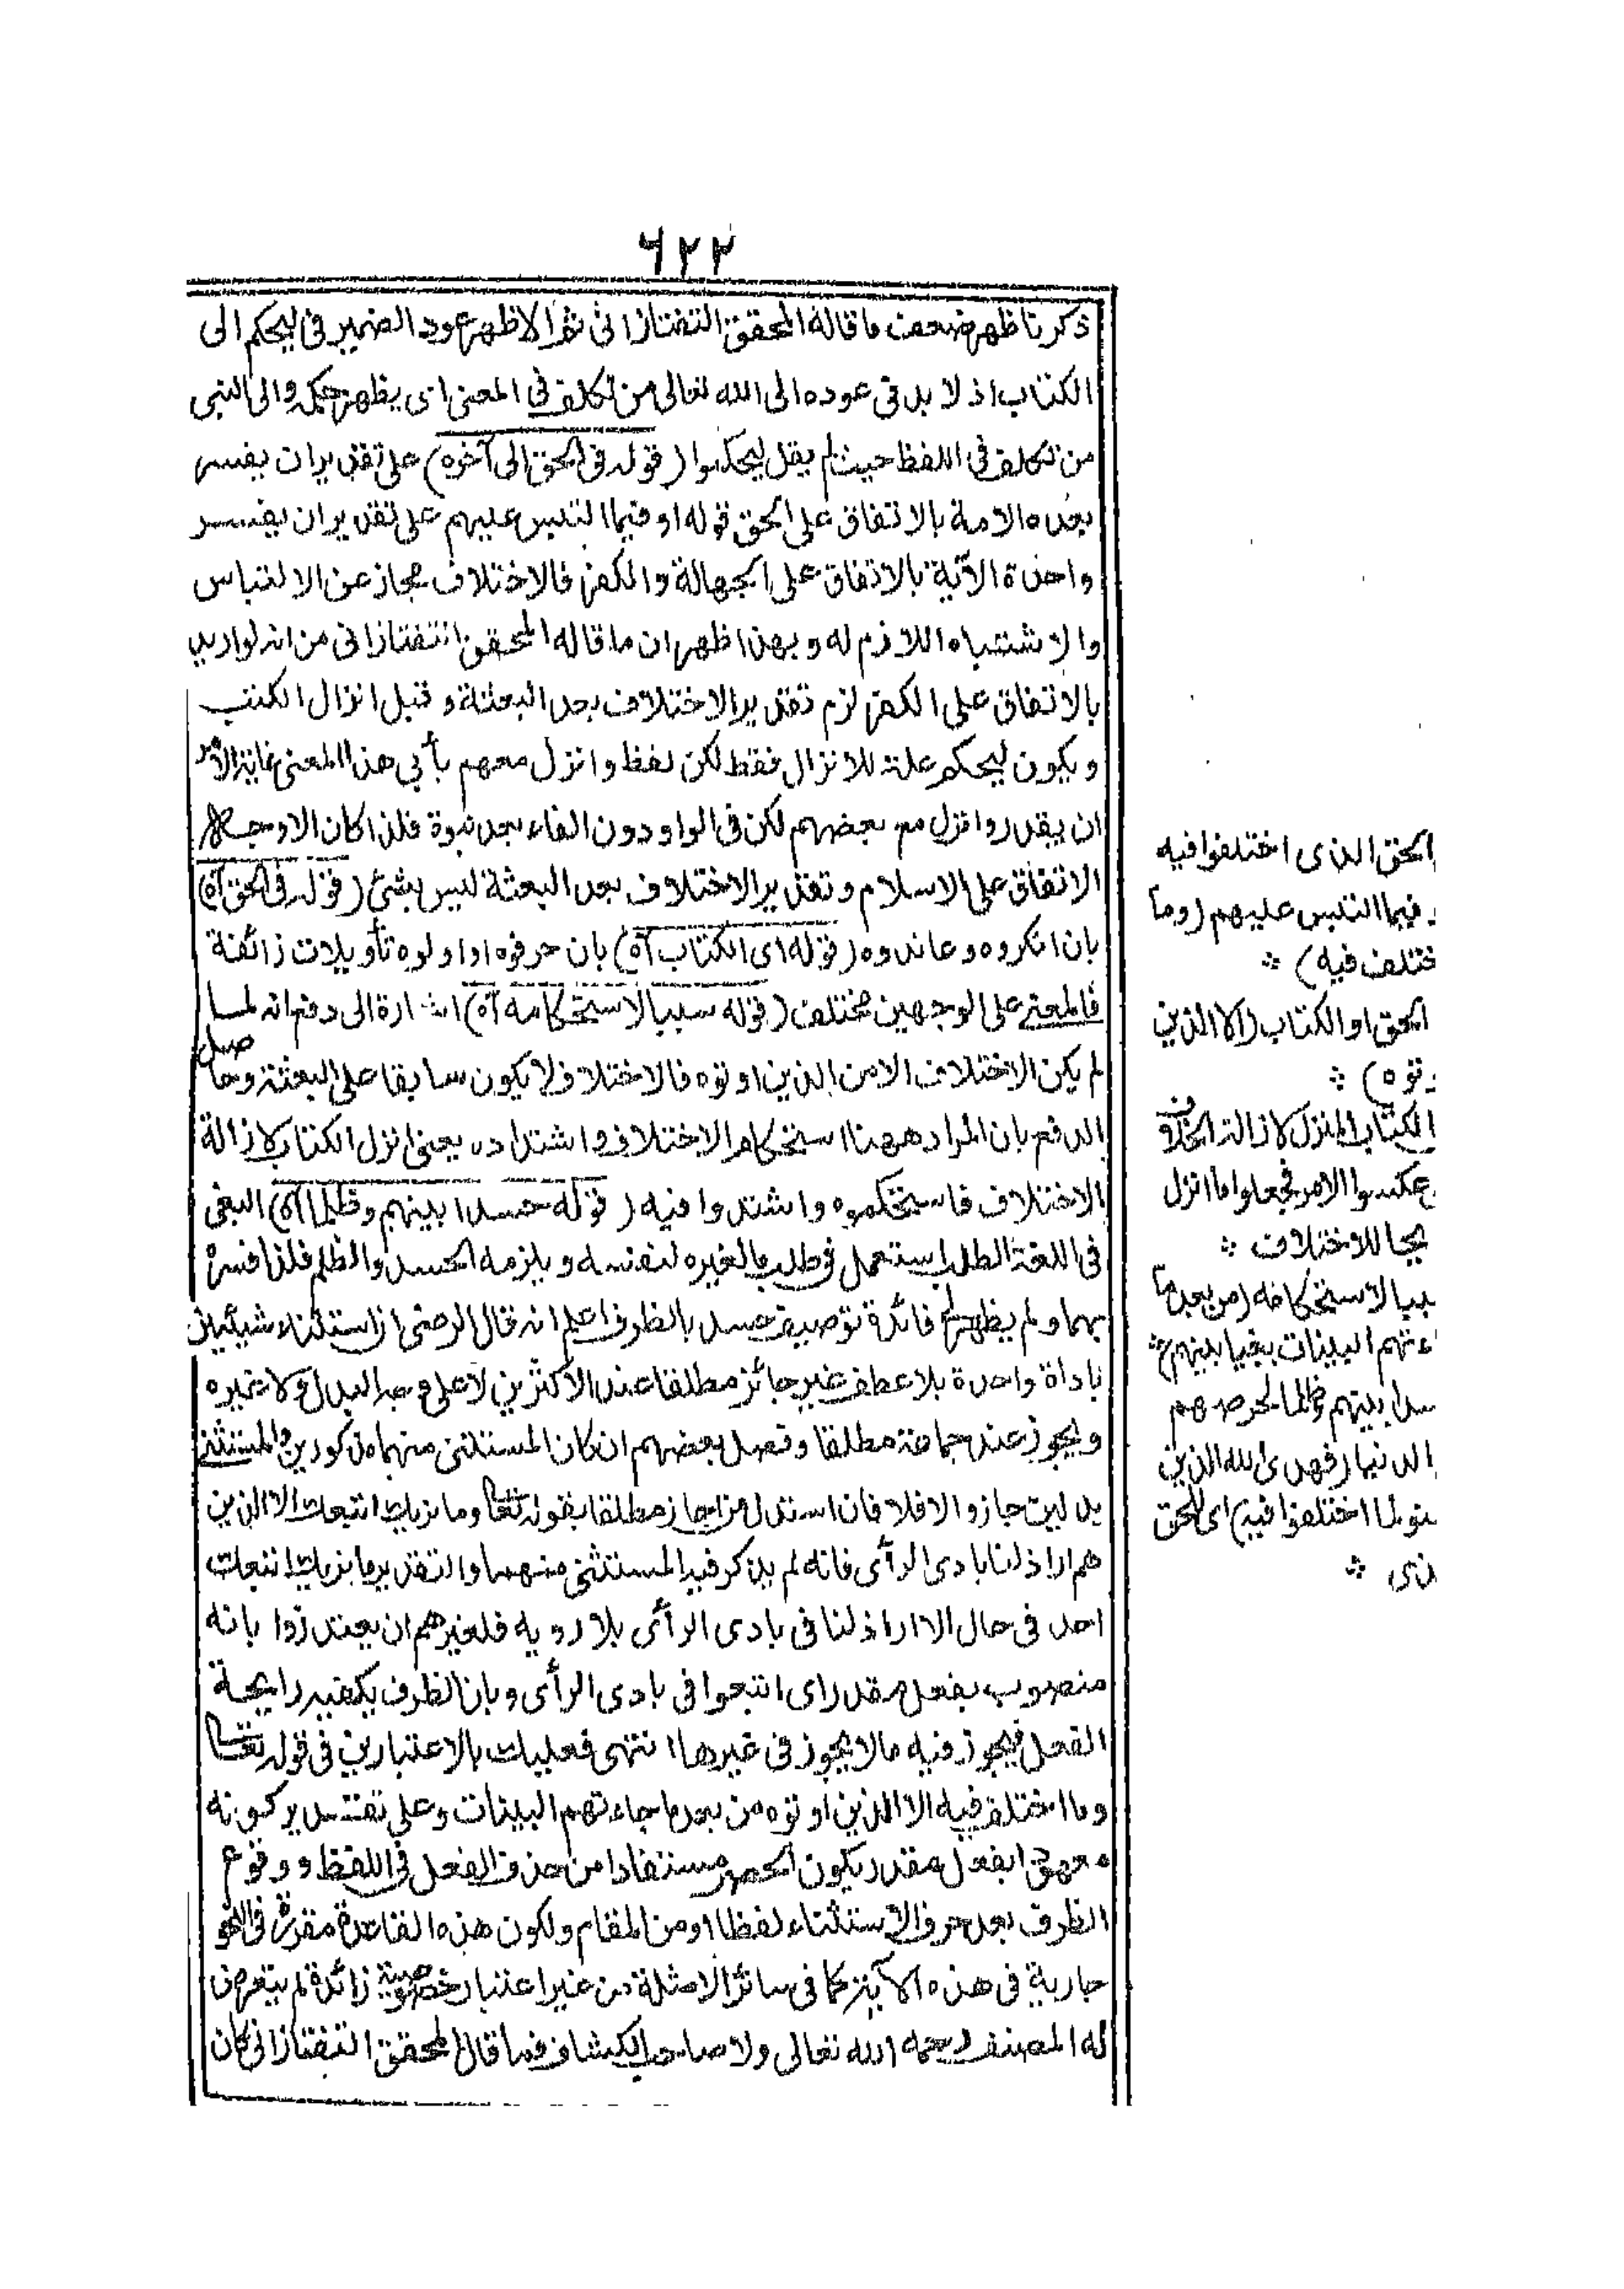 ٦٢٢
ذكرنا ظهر ضعف ما قاله المحقق التفتازانى ثم الاظهر عود الضمير فى ليحكم الى
الكتاب اذ لا بد فى عوده الى الله تعالى من تكلف فى المعنى اى يظهر حكمه والى النبى
من تكلف فى اللفظ حيث لم يقل ليحكموا (قوله فى الحق الى آخره) على تقدير ان يفسر
بعده الامة بالاتفاق على الحق قوله او فيما التبس عليهم على تقدير ان يفسر
واحدة الآية بالاتفاق على الجهالة والكفر فالاختلاف مجاز عن الالتباس
والاشتباه اللازم له وبهذا ظهر ان ما قاله المحقق التفتازانى من انه لو اريد
بالاتفاق على الكفر لزم تقدير الاختلاف بعد البعثة وقبل انزال الكتب
ويكون ليحكم علة للانزال فقط لكن لفظ وانزل معهم يأبى هذا المعنى غاية الامر
ان يقدر وانزل مع بعضهم لكن فى الواو دون الفاء بعد نبوة فلذا كان الاوجه
الاتفاق على الاسلام وتقدير الاختلاف بعد البعثة ليس بشئ (قوله فى الحق آه)
بان انكروه وعاندوه (قوله اى الكتاب آه) بان حرفوه او اولوه تأويلات زائفة
فالمعنى على الوجهين مختلف (قوله سببا لاستحكامه آه) اشارة الى دفع انه لما
لم يكن الاختلاف الا من الذين اوتوه فالاختلاف لا يكون سابقا على البعثة وحاصل
الدفع بان المراد ههنا استحكام الاختلاف واشتداده يعنى انزل الكتاب لازالة
الاختلاف فاستحكموه واشتدوا فيه (قوله حسدا بينهم وظلما آه) البغى
فى اللغة الطلب استعمل فى طلب ما لغيره لنفسه ويلزمه الحسد والظلم فلذا فسره
بهما ولم يظهر لى فائدة توصيف حسد بالظرف اعلم انه قال الرضى ان استثناء شيئين
باداة واحدة بلا عطف غير جائز مطلقا عند الاكثرين لا على وجه البدل ولا غيره
ويجوز عند جماعة مطلقا وفصل بعضهم ان كان المستثنى منهما مذكورين والمستثنى
بدلين جاز والا فلا فان استدل من اجاز مطلقا بقوله تعالى وما نريك اتبعك الا الذين
هم اراذلنا بادى الرأى فانه لم يذكر فيه المستثنى منهما والتقدير ما نريك اتبعك
احد فى حال الا اراذلنا فى بادى الرأى بلا روية فلغيرهم ان يعتذروا بانه
منصوب بفعل مقدر اى اتبعوا فى بادى الرأى وبان الظرف يكفيه رايحة
الفعل فيجوز فيه ما لا يجوز فى غيرها انتهى فعليك بالاعتبارين فى قوله تعالى
وما اختلف فيه الا الذين اوتوه من بعد ما جاءتهم البينات وعلى تقدير كونه
معمولا بفعل مقدر يكون الحصر مستفادا من حذف الفعل فى اللفظ ووقوع
الظرف بعد حرف الاستثناء لفظا او من المقام ولكون هذه القاعدة مقررة فى النحو
جارية فى هذه الآية كما فى سائر الامثلة من غير اعتبار خصوصية زائدة لم يتعرض
له المصنف رحمه الله تعالى ولا صاحب الكشاف فما قال المحقق التفتازانى كان
الحق الذى اختلفوا فيه
فيما التبس عليهم (وما
ختلف فيه)
الحق او الكتاب (الا الذين
وتوه)
الكتاب المنزل لازالة الخلاف
عكسوا الامر فجعلوا ما انزل
يحا للاختلاف
ببا لاستحكامه (من بعد ما
ءتهم البينات بغيا بينهم)
سدا بينهم وظلما لحرصهم
الدنيا (فهدى الله الذين
منوا لما اختلفوا فيه) اى للحق
ذى